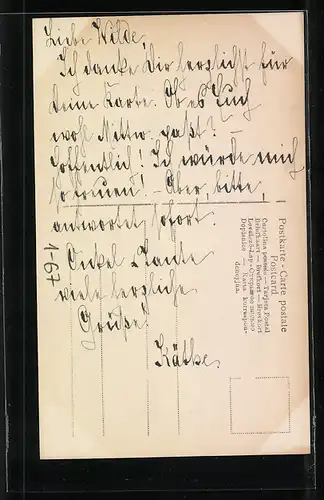 Liebe Wilde,
Ich danke Dir herzlichst für
Deine Karte. Ob es Euch
wohl Mittw. paßt? —
Hoffentlich! Ich würde mich
so freuen! — Aber, bitte,
antwortet sofort.
Onkel Tante
viele herzliche
Grüße!
Käthe.
1-67
Postkarte - Carte postale
Postcard
Cartolina postale — Tarjeta Postal
Brefkort — Brevkort
Levelező-Lap
Dopisnice — Karta korrespon-
dencyjna.